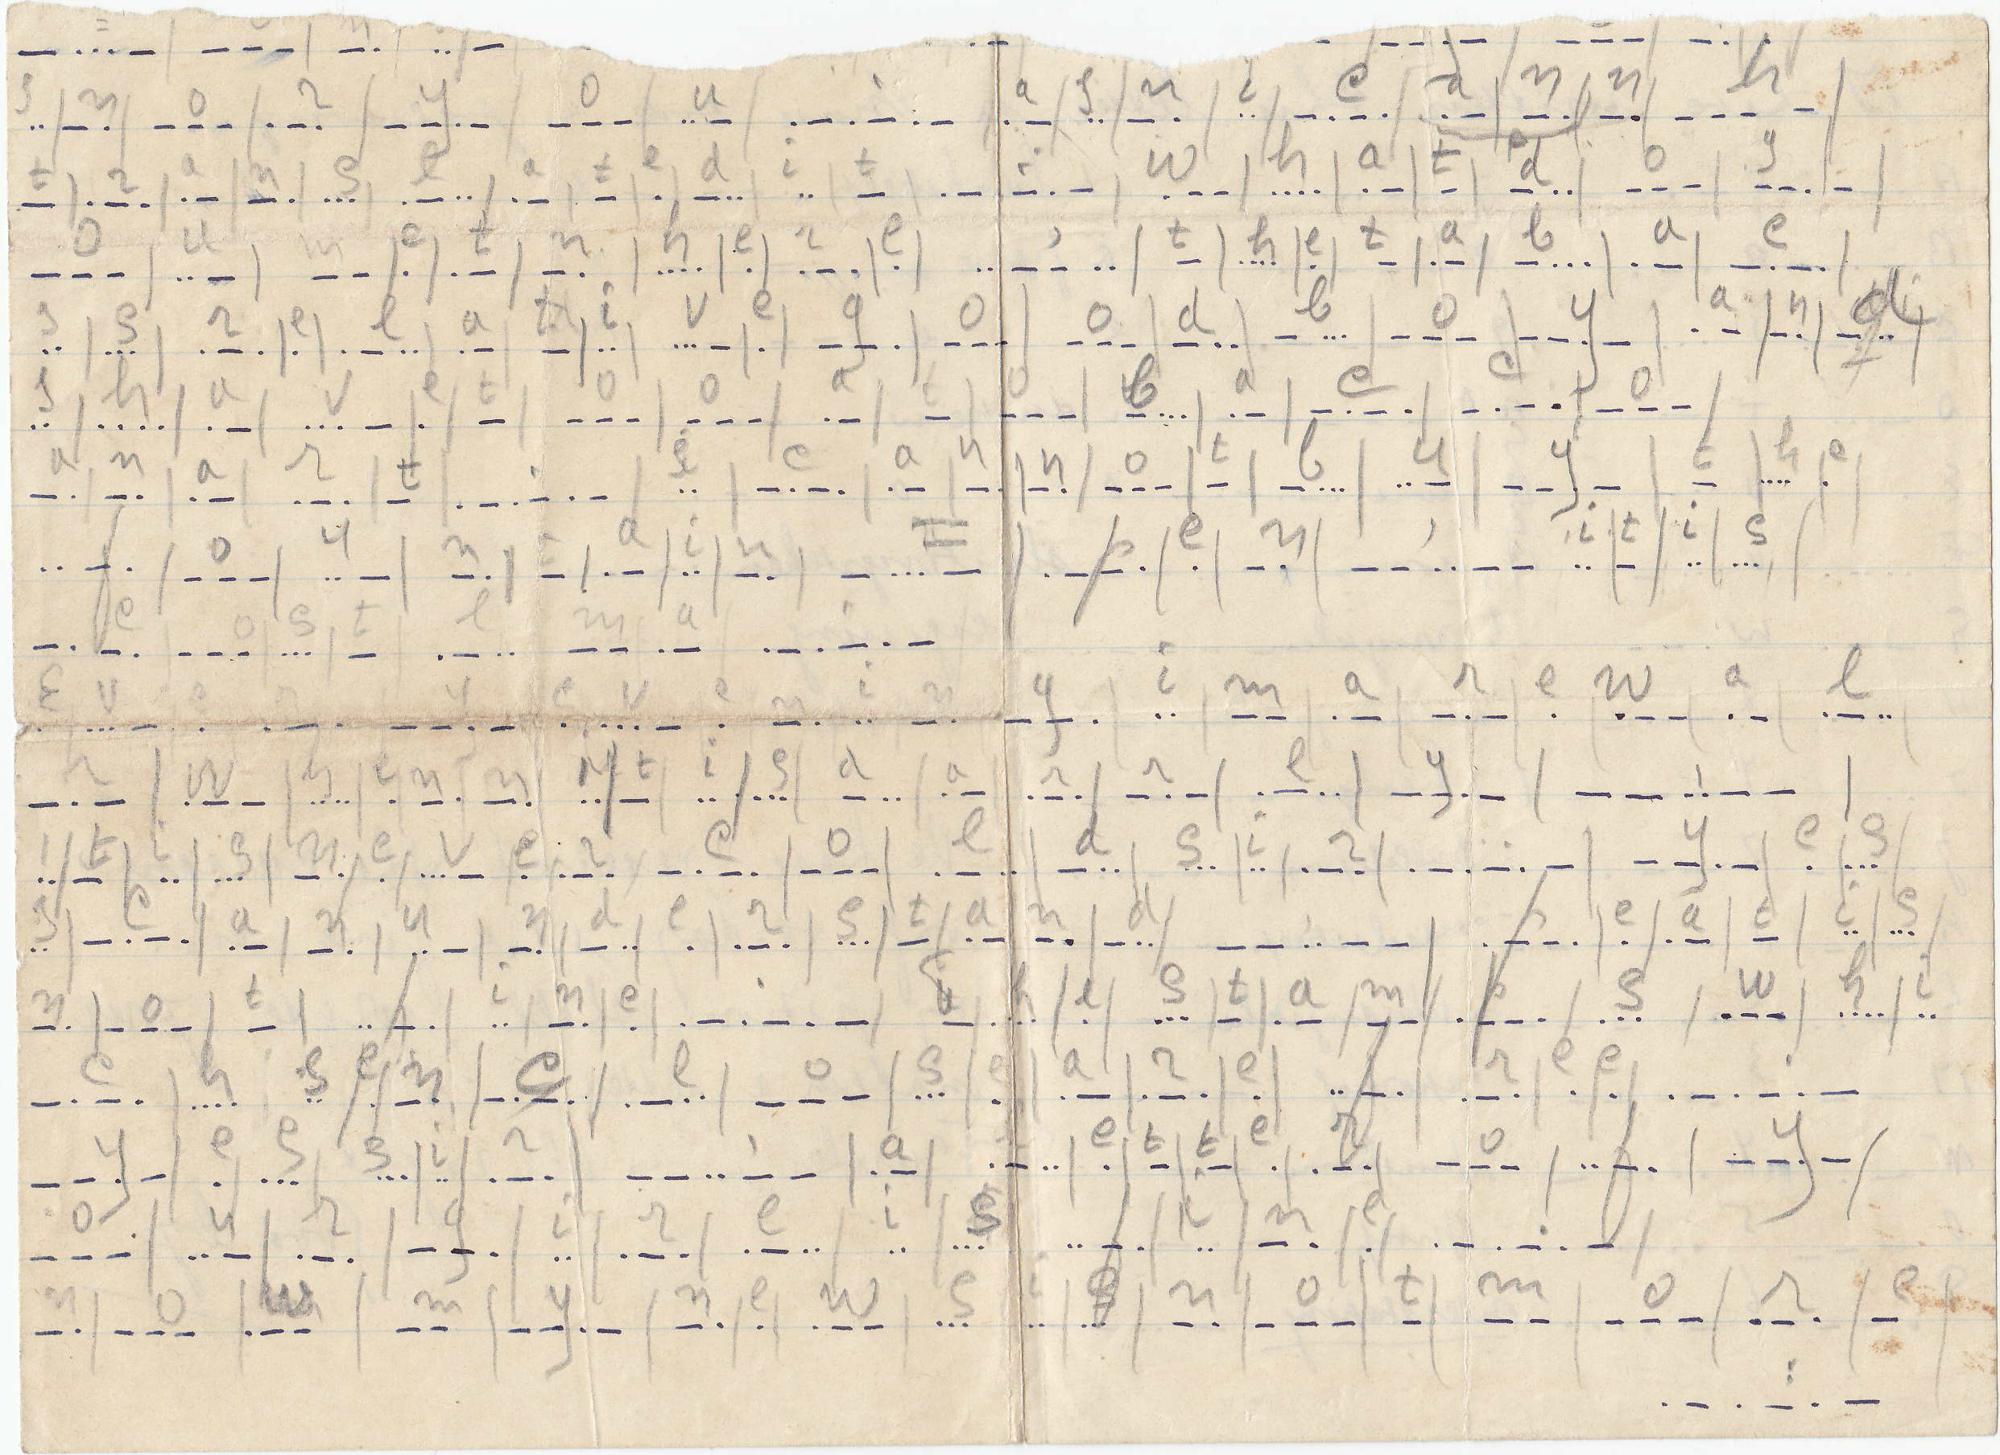 s n o r y o u . a s n i c e a n n h
t r a n s l a t e d i t . w h a t d o y
o u m e t n h e r e , t h e t a b a c
i s r e l a t i v e g o o d b o y a n d
i h a v e t o o a t o b a c c o
a n a r t . i c a n n o t b u y t h e
f o u n t a i n = p e n , i t i s
c o s t l m a .
e v e r y e v e n i n g i m a r e w a l
k w h e n n i t i s d a r r l y ,
i t i s n e v e r c o l d s i r . y e s
i c a n u n d e r s t a n d , p e a t i s
n o t f i n e . t h e s t a m p s w h i
c h i e n c l o s e a r e f r e e .
y e s s i r , a l e t t e r o f y
o u r g i r l i s f i n e .
n o w m y n e w s i s n o t m o r e
.